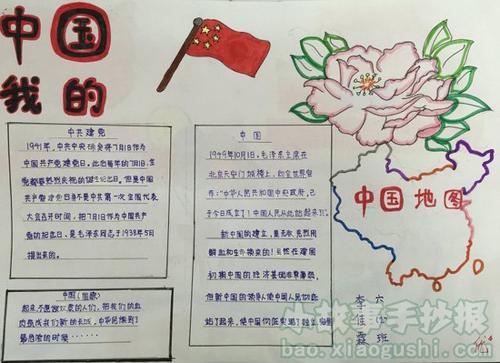 中国
我的
中共建党
1941年,中共中央研究将7月1日作为
中国共产党建党日。此后每年的7月1日,全
党都要热烈庆祝的诞生纪念日。但是中国
共产党的生日并不是中共第一次全国代表
大会召开时间,把7月1日作为中国共产
党的纪念日,是毛泽东同志于1938年5月
提出来的。
中国(国歌)
起来不愿做奴隶的人们,把我们的血
肉筑成我们新的长城,中华民族到了
最危险的时候
中国
1949年10月1日,毛泽东主席在
北京天安门城楼上,向全世界宣
布:"中华人民共和国中央政府,已
于今日成立了!中国人民从此站起来了"。
新中国的建立,是无数先烈用
鲜血和生命换来的!虽然在建国
初期中国的经济基础非常薄弱,
但新中国的领导人使中国人民彻底
站了起来,使中国彻底实现了独立
中国地图
六(2)班
李佳霖
小故事手抄报
bao.xiaogushi.com